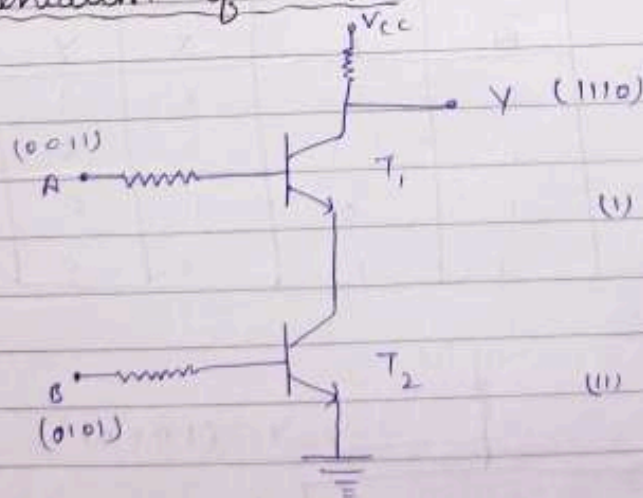 Vcc
Y (1110)
(0011)
A
T1
(1)
B
T2
(11)
(0101)